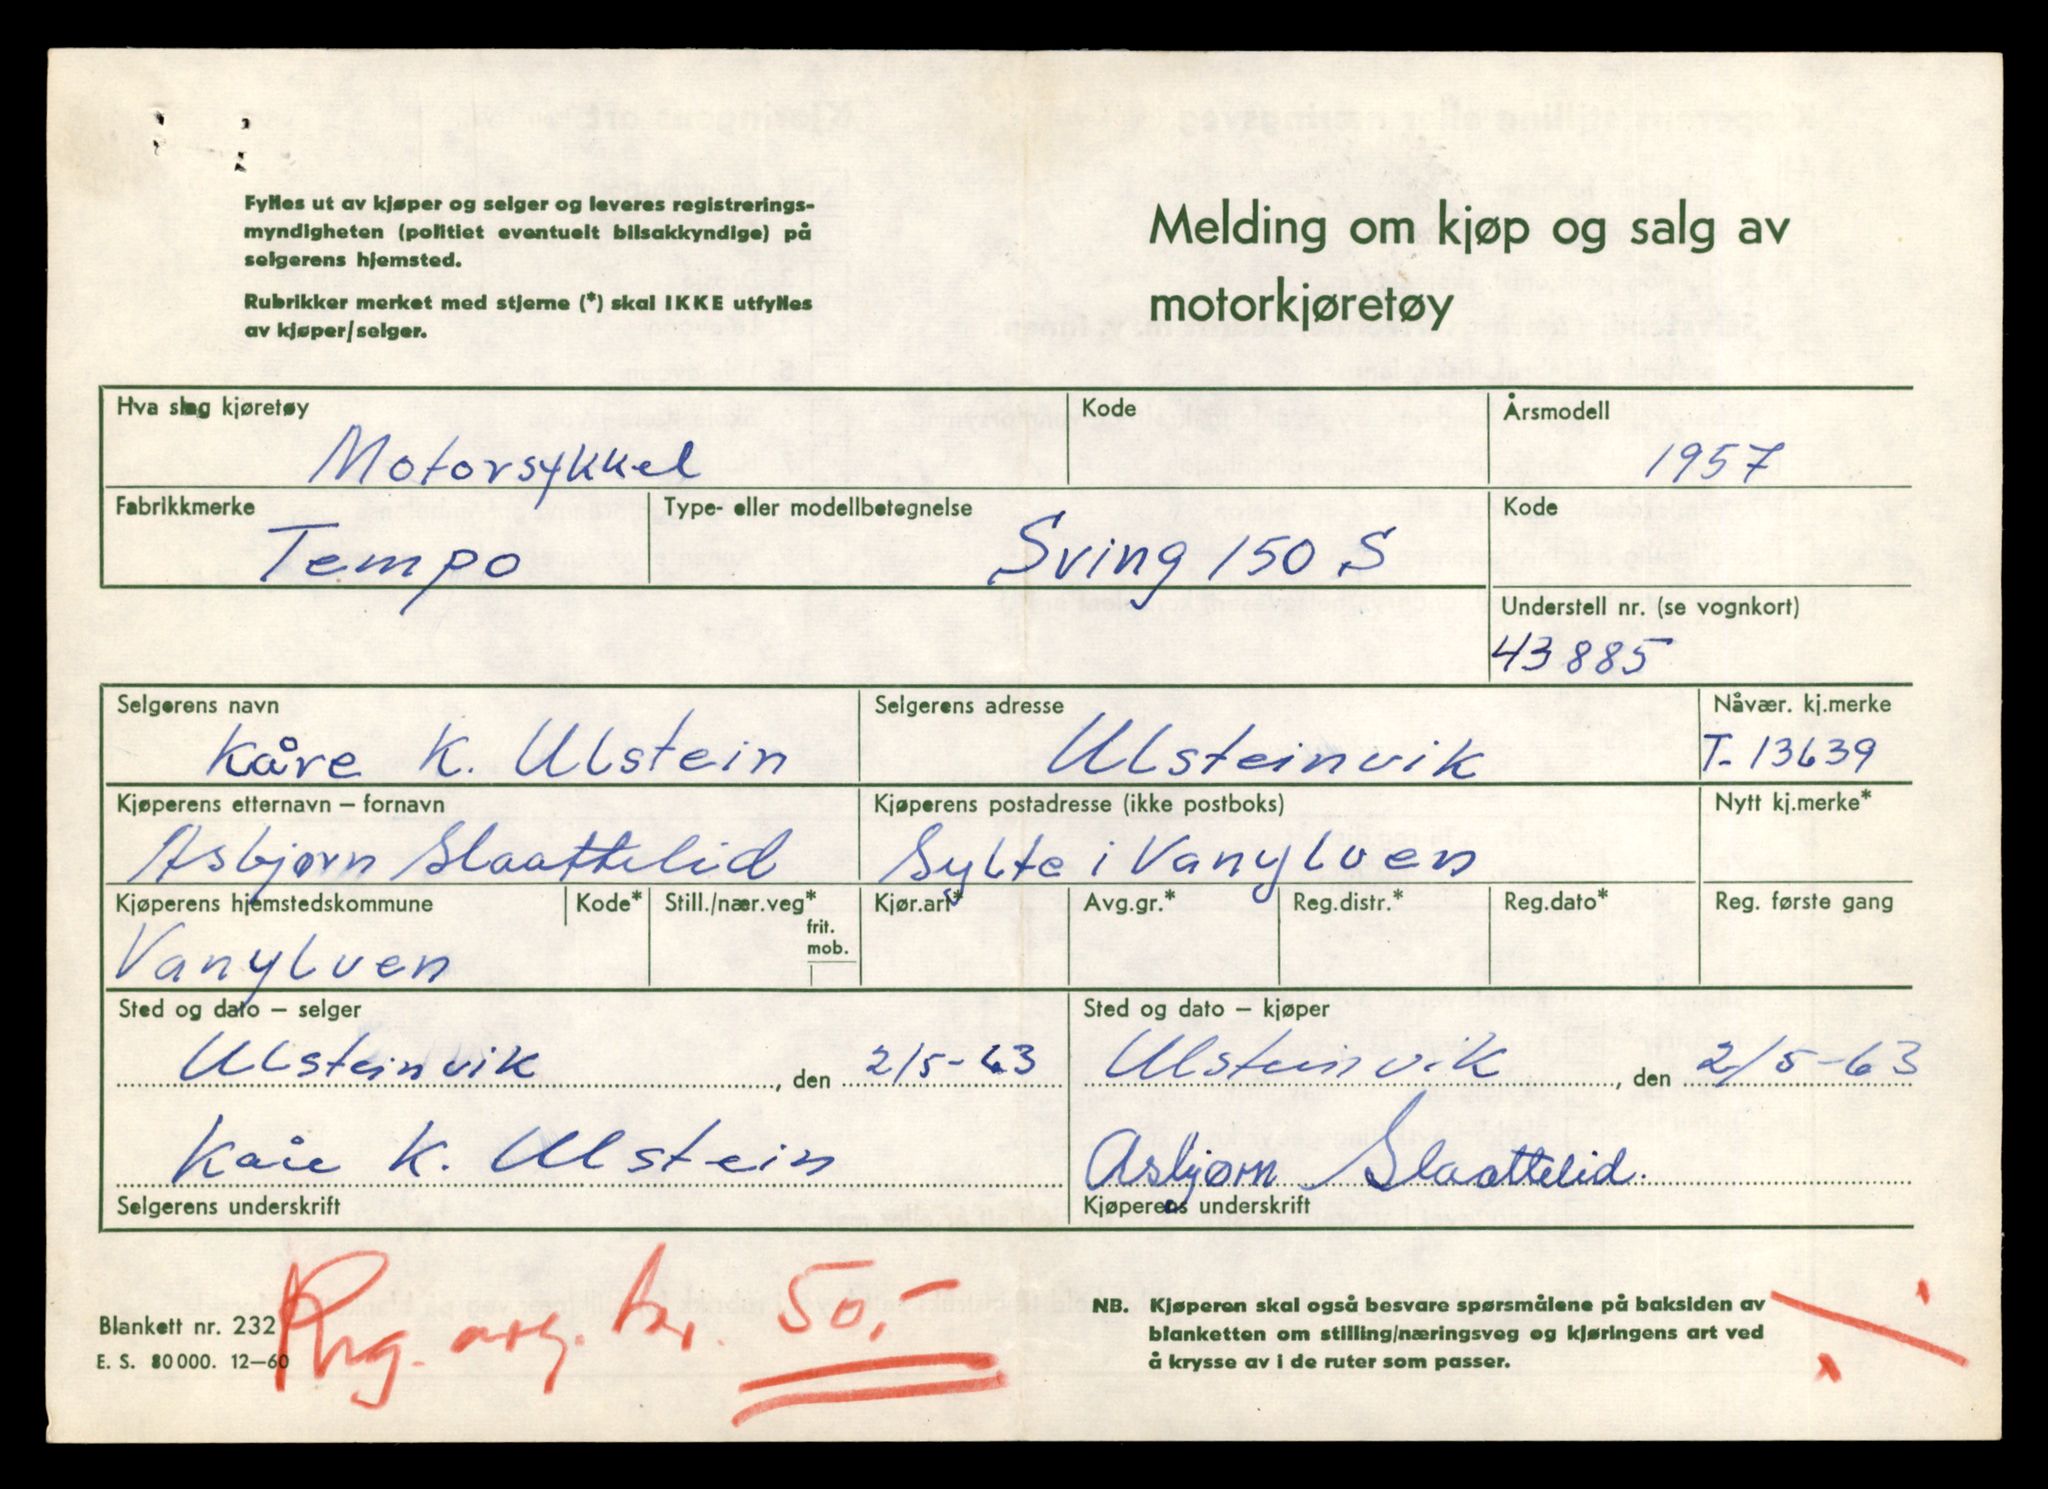 Fylles ut av kjøper og selger og leveres registrerings-
myndigheten (politiet eventuelt bilsakkyndige) på
selgerens hjemsted.
Rubrikker merket med stjerne (*) skal IKKE utfylles
av kjøper/selger.
Melding om kjøp og salg av
motorkjøretøy
Hva slag kjøretøy Kode Årsmodell
Motorsykkel 1957
Fabrikkmerke Type- eller modellbetegnelse Kode
Tempo Sving 150 S
Understell nr. (se vognkort)
43885
Selgerens navn Selgerens adresse Nåvær. kj.merke
Kåre K. Ulstein Ulsteinvik T-13639
Kjøperens etternavn – fornavn Kjøperens postadresse (ikke postboks) Nytt kj.merke*
Asbjørn Slaattelid Sylte i Vanylven
Kjøperens hjemstedskommune Kode* Still./nær.veg* Kjør.art* Avg.gr.* Reg.distr.* Reg.dato* Reg. første gang
frit.
mob.
Vanylven
Sted og dato – selger Sted og dato – kjøper
Ulsteinvik, den 2/5-63 Ulsteinvik, den 2/5-63
Kåre K. Ulstein Asbjørn Slaattelid.
Selgerens underskrift Kjøperens underskrift
Blankett nr. 232
E. S. 80000. 12–60
avg. kr. 50,-
NB. Kjøperen skal også besvare spørsmålene på baksiden av
blanketten om stilling/næringsveg og kjøringens art ved
å krysse av i de ruter som passer.